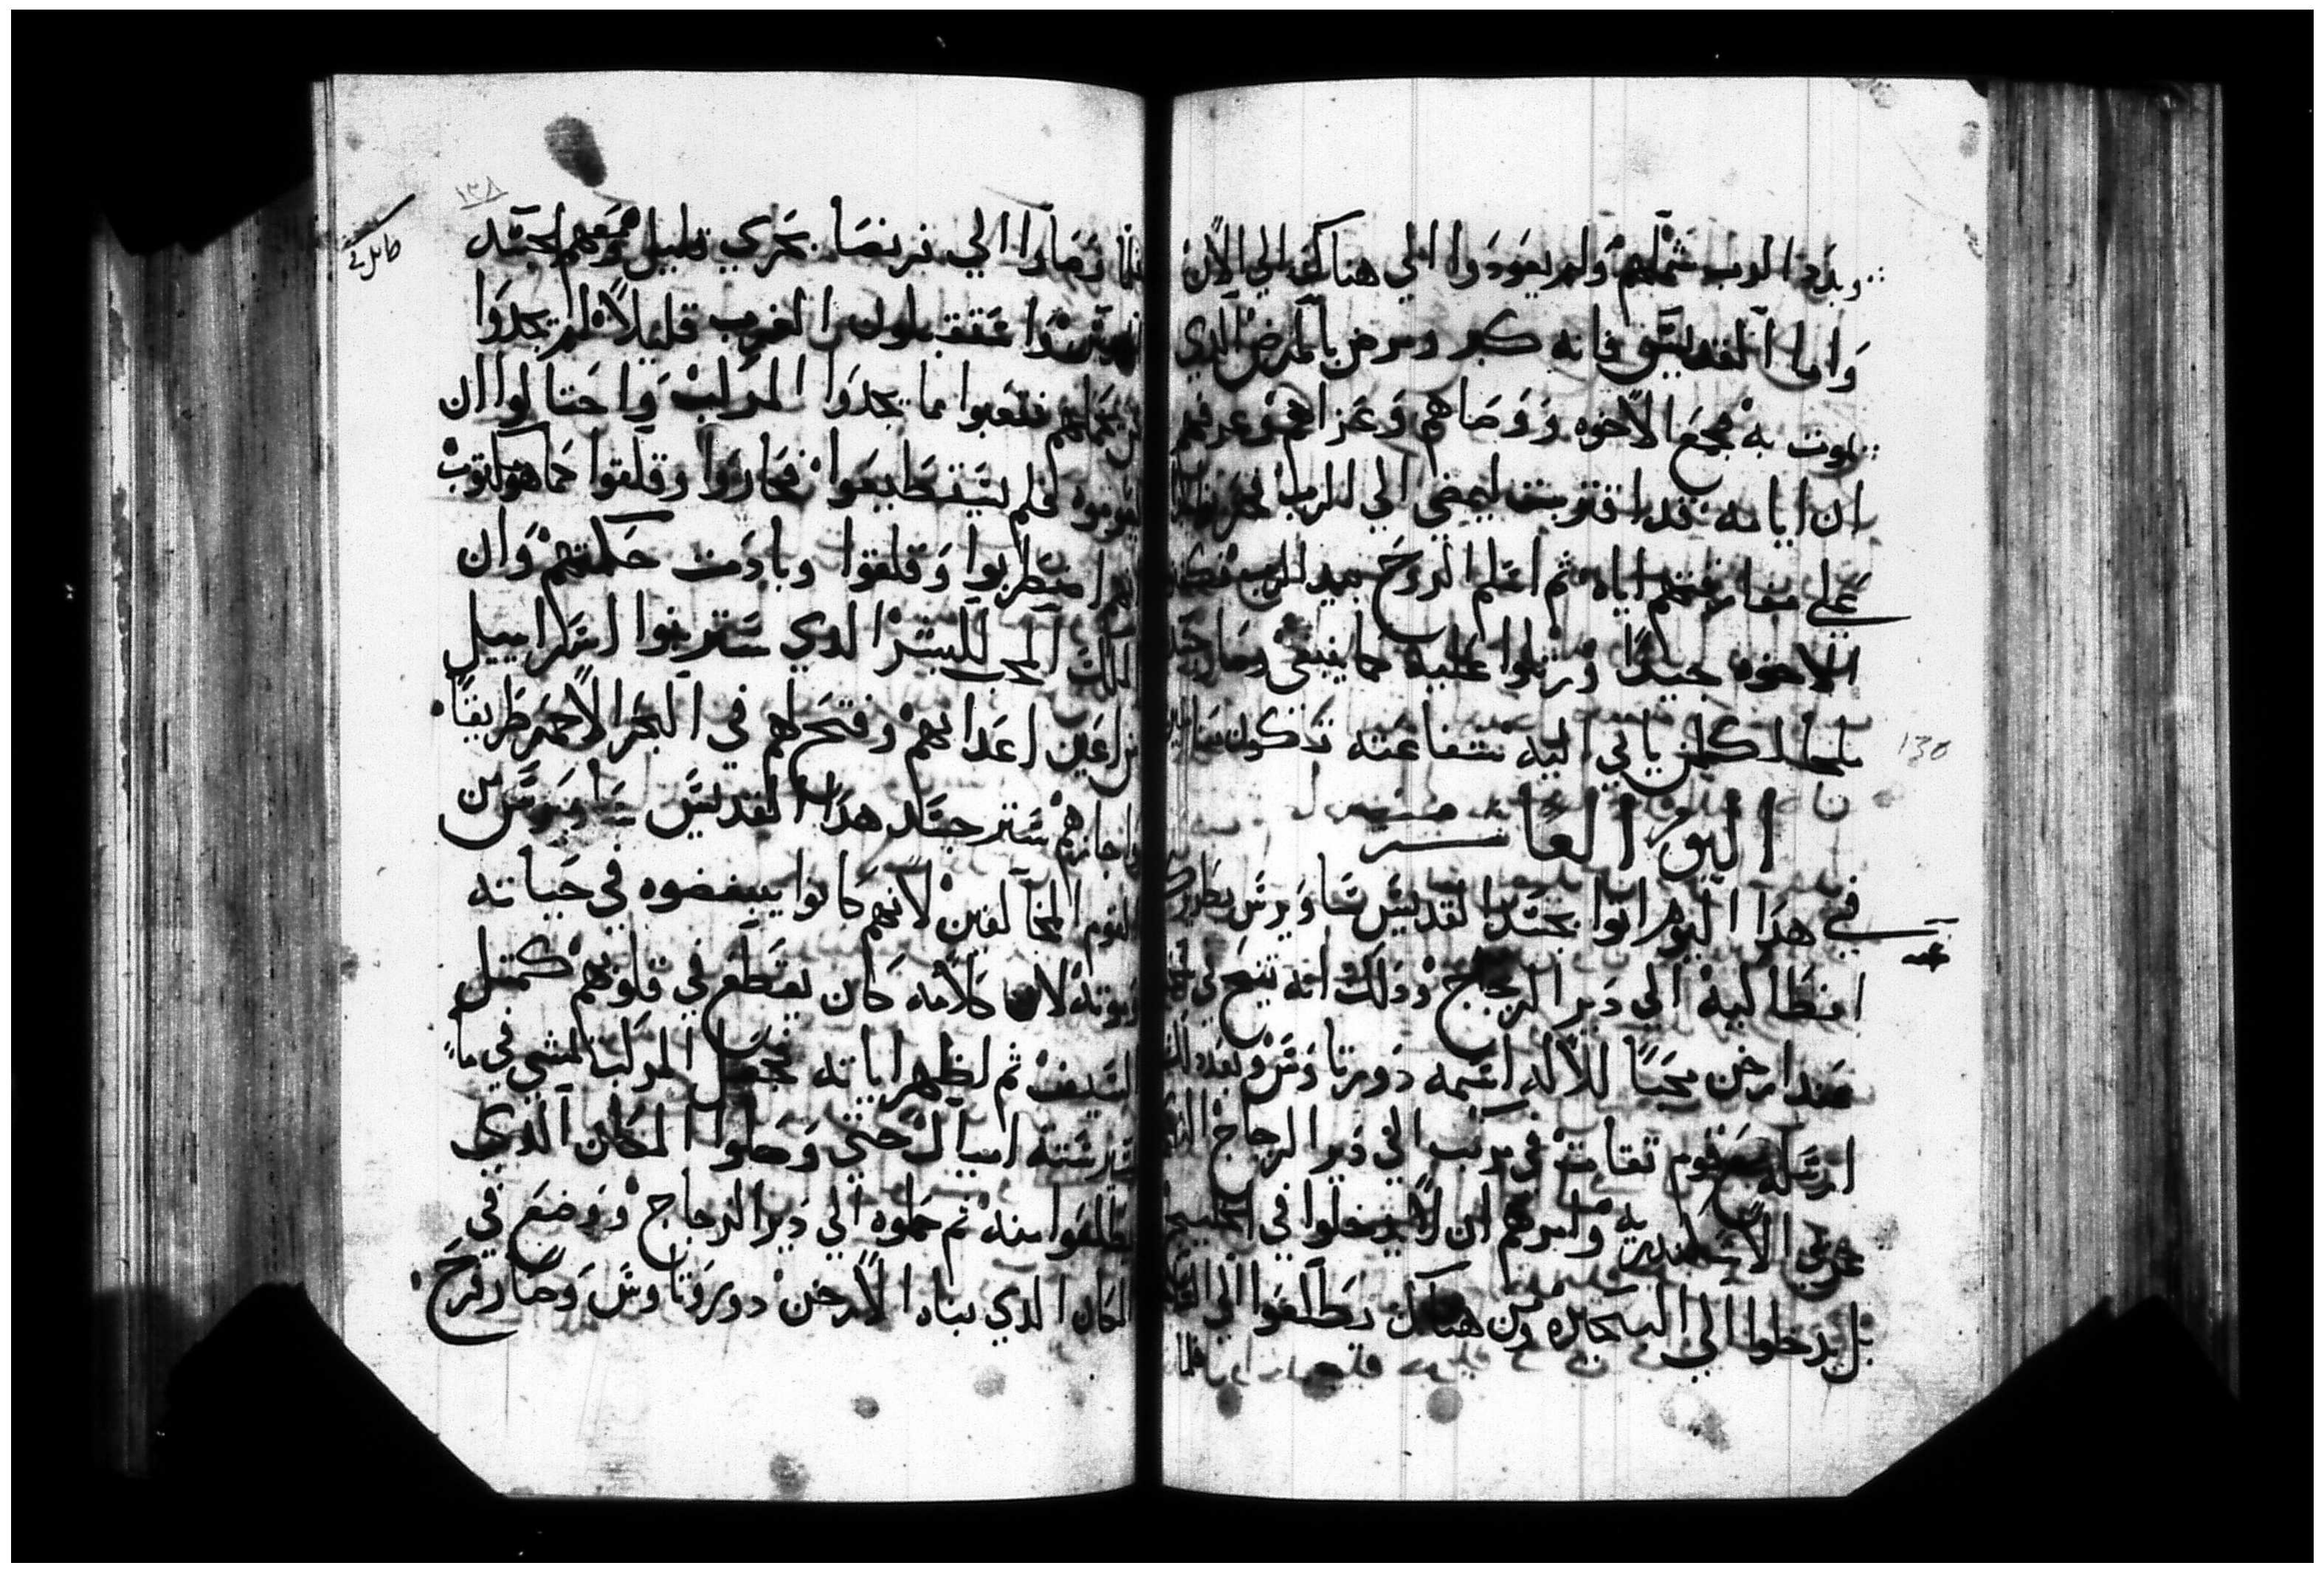 وبدد الرب شملهم ولم يعودوا الي هناك الي الان
واما القديس فانه كبر ومرض بالمرض الذي
يموت به فجمع الاخوه ووصاهم وعزاهم وعرفهم
ان ايامه قد اقتربت ليمضي الي الرب فحزنوا
علي مفارقتهم اياه ثم اسلم الروح بيد الرب فكفنوا
الاخوه جسده ورتلوا عليه كما ينبغي وصار جسده
ملجا لكلمن ياتي اليه شفاعته تكون معنا امين
اليوم العاشر
في هذا اليوم اتوا بجسد القديس ساويرس بطريرك
انطاكيه الي دير الزجاج وذلك انه تنيح في
عند ارخن محبا للاله اسمه دورتاوس وبعده
ارسله مع قوم ثقات في مركب الي دير الزجاج الذي
غربي الاسكندريه وامرهم ان لا يدخلوا في الخليج
بل يدخلوا الي البحيره ومن هناك يطلعوا الي
فلما
١٣٨
فلما وصاروا الي قرنصا بحري قليل ومعهم الجسد
عتقبلون الغرب قليلا فلم يجدوا
فتعبوا بما يجدوا المركب واحتالوا ان
يعوموه فلم يستطيعوا فحاروا وقلقوا كما هو مكتوب
انهم اضطربوا وقلقوا وبادت حكمتهم وان
الله المحب للبشر الذي ستر بنوا اسراييل
من اعين اعدايهم وفتح لهم في البحر الاحمر طريقا
واجازهم ستر جسد هذا القديس ساويرس من
القوم المخالفين لانهم كانوا يبغضوه في حياته
وموته لان كلامه كان يقطع في قلوبهم كمثل
السيف ثم اظهر اياته فجعل المركب تمشي في ما
قدر سته اميال حتي وصلوا المكان الذي
طلعوا منه ثم حملوه الي دير الزجاج ووضع في
المكان الذي بناه الارخن دوروتاوس وصار فرح